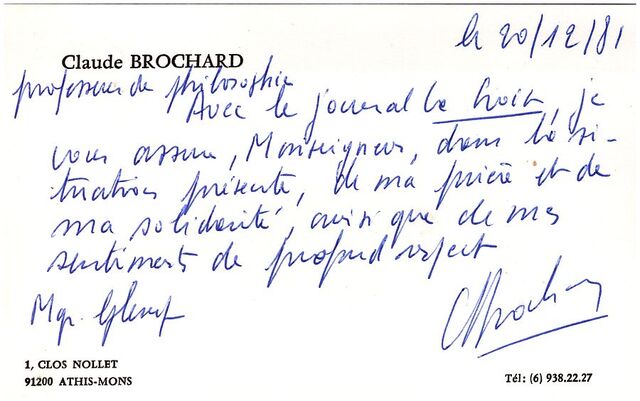 le 20/12/81
Claude BROCHARD
professeur de philosophie
Avec le journal La Croix, je
vous assure, Monseigneur, dans la si-
tuation présente, de ma prière et de
ma solidarité, ainsi que de mes
sentiments de profond respect
Mgr Glemp
CBrochard
1, CLOS NOLLET
91200 ATHIS-MONS
Tél: (6) 938.22.27